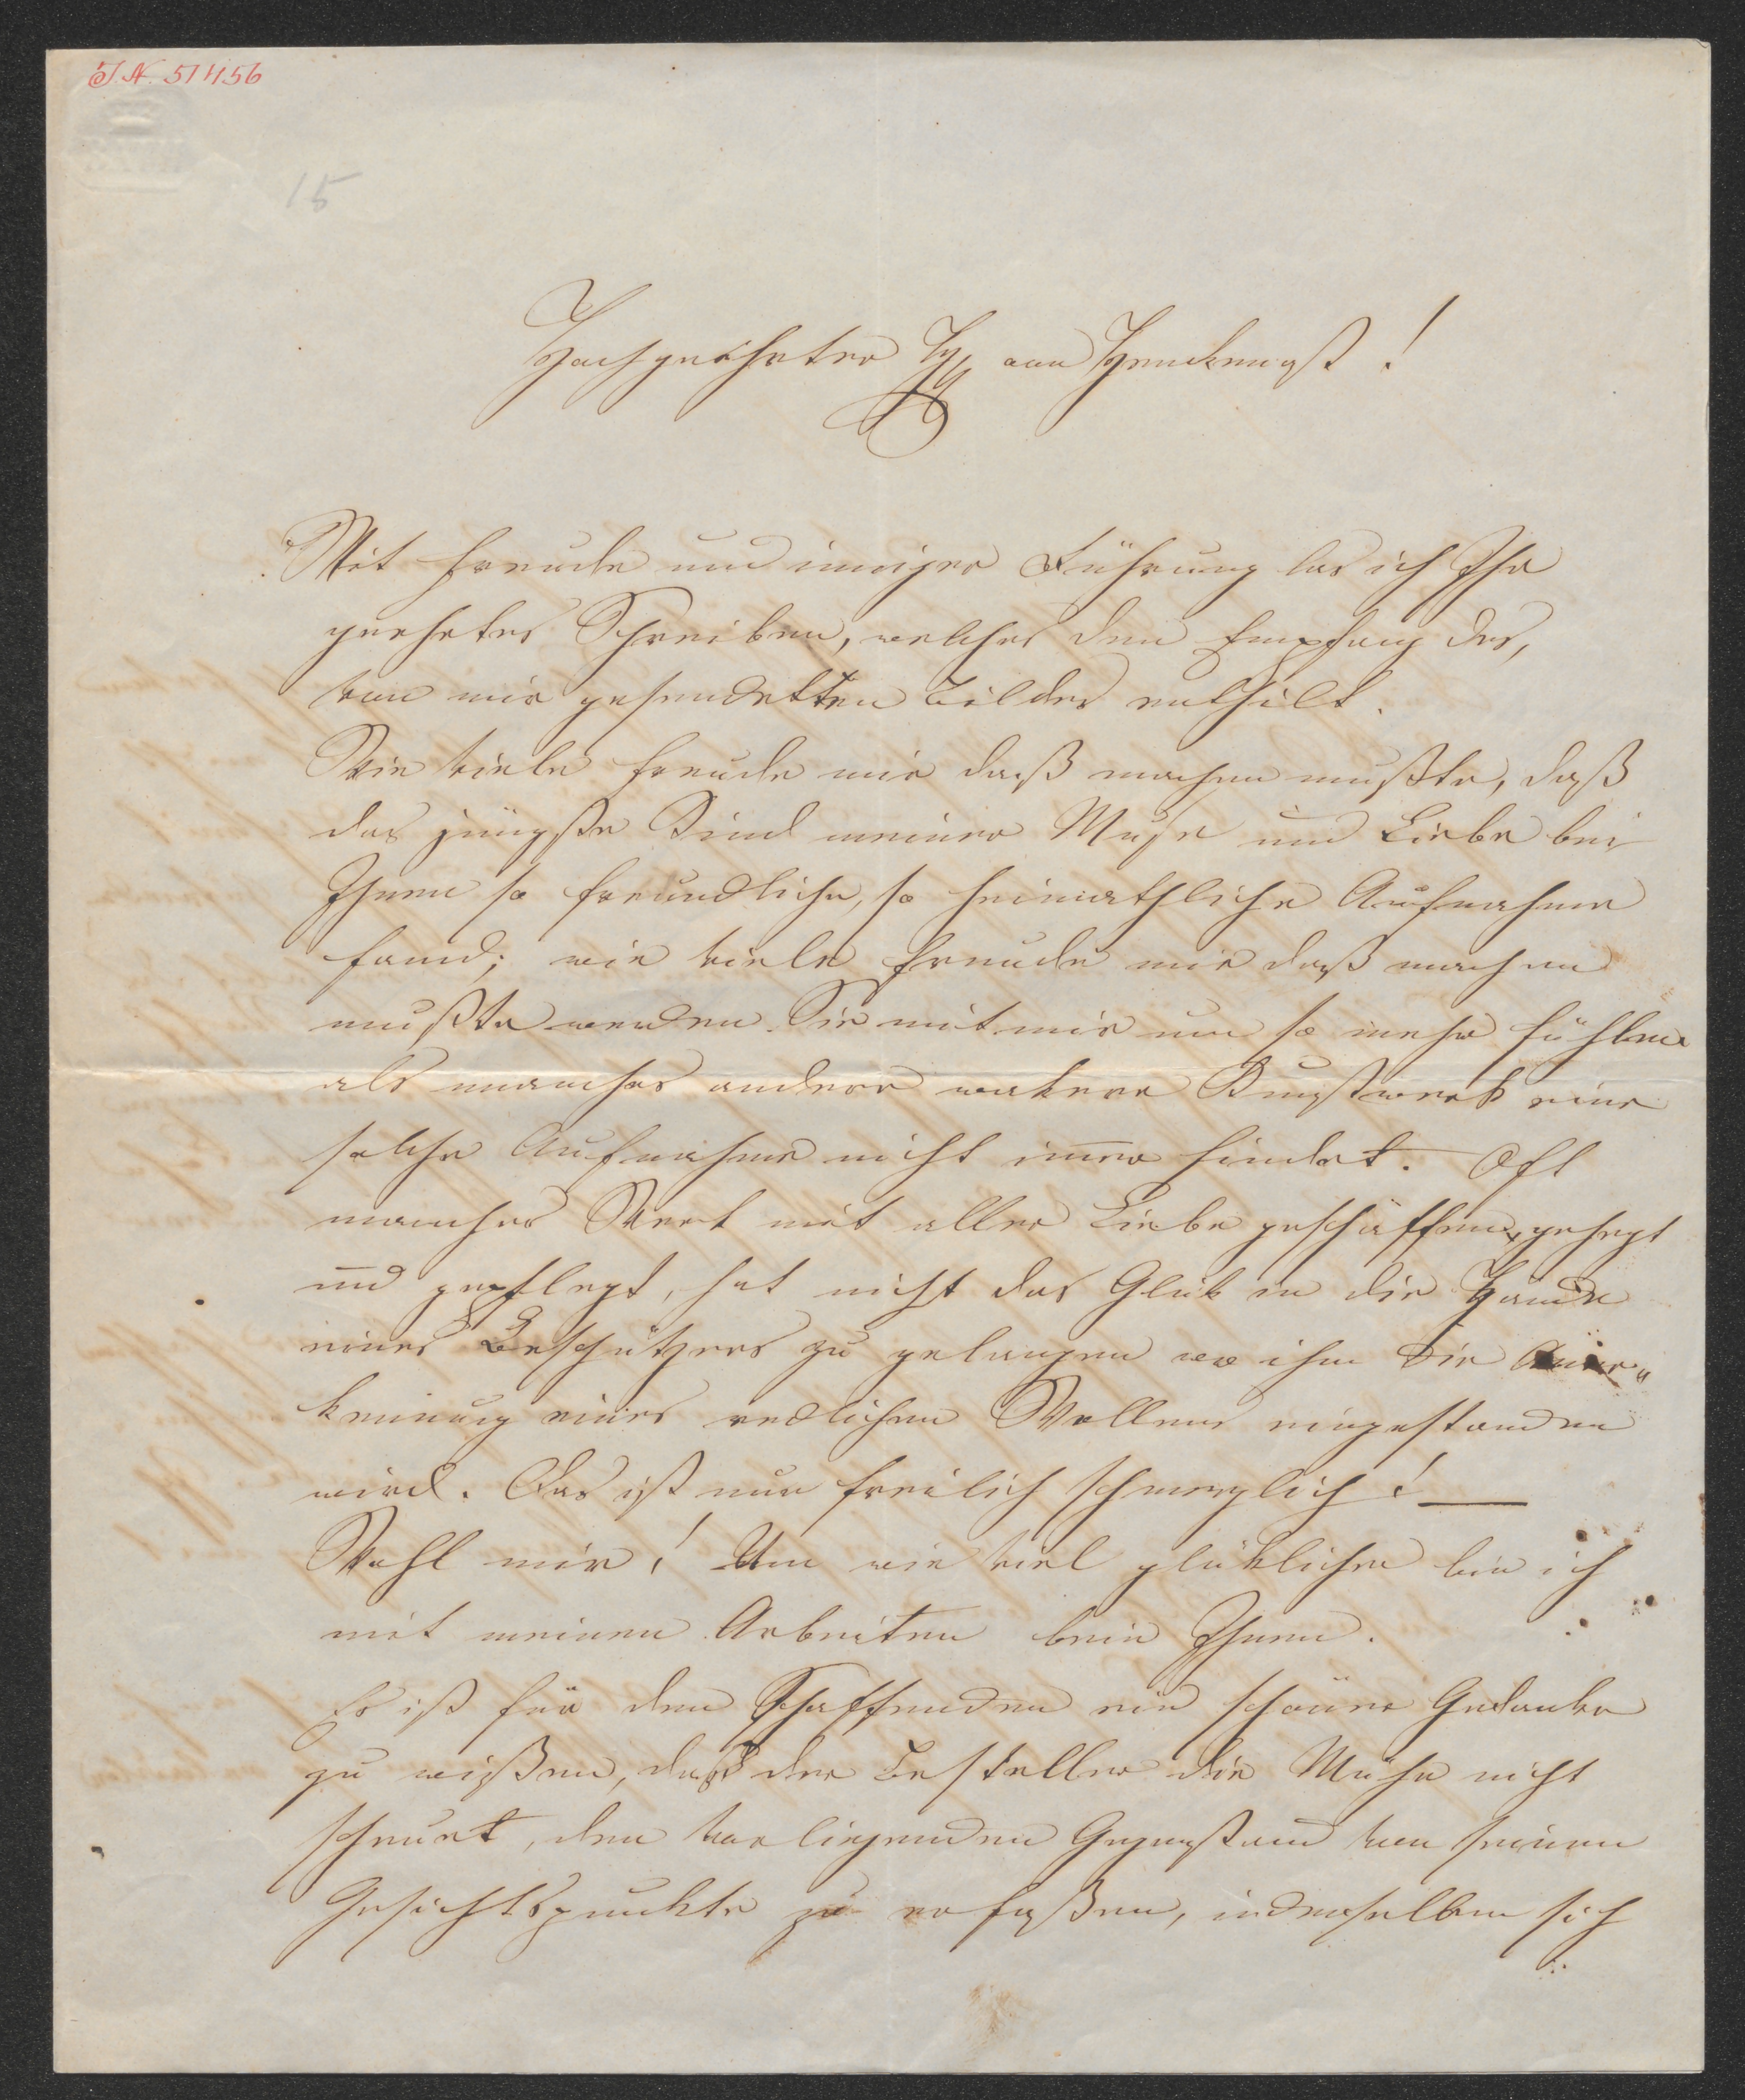 I.N. 51456
15
Hochgeehrter H von Honckenugst!
Mit Freude und inniger Rührung las ich Ihr
geehrtes Schreiben, welches den Empfang des,
von mir gesendetten Bildes enthilt.
Wie viele Freude mir daß machen mußte, daß
das jüngste Kind meiner Muse und Liebe bei
Ihnen so freundliche, so heimathliche Aufnahme
fand; wie viele Freude mir daß machen
mußte werden Sie mit mir um so mehr fühlen
als manches andere wakere Kunstwerk eine
solche Aufnahme nicht im̅er findet. Oft
manches Werk mit aller Liebe geschaffen, gehegt
und gepflegt, hat nicht das Glük in die Hände
eines Beschützers zu gelangen wo ihm die Aner„
kennung eines redlichen Wollens eingestanden
wird. Das ist nun freilich schmerzlich! —
Wohl mir! Um wie viel glüklicher bin ich
mit meinen Arbeiten bein Ihnen.
Es ist für den Schaffenden ein schöner Gedanke
zu wißen, daß der Besteller die Mühe nicht
scheuet, den vorliegenden Gegenstand von seinem
Gesichtspunkte zu erfaßen, indemselben sich